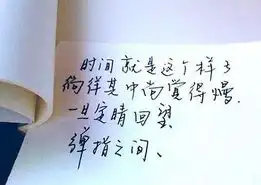 时间就是这个样子
徜徉其中尚觉得慢
一旦定睛回望
弹指之间、